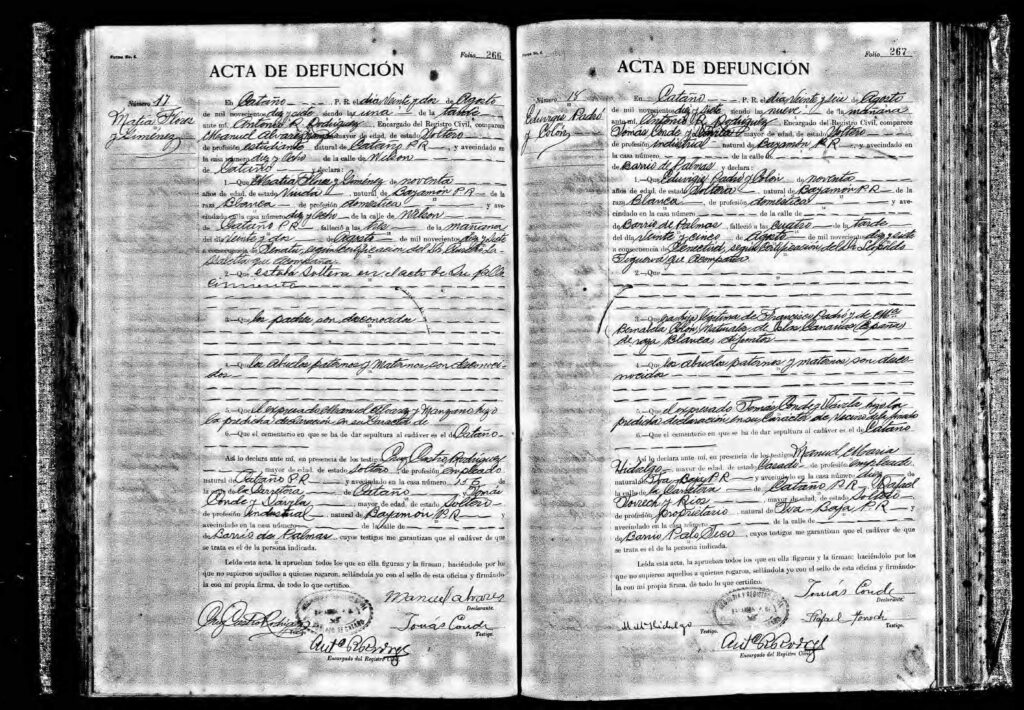 Forma No. 4.
Folio 266
ACTA DE DEFUNCIÓN
Número 17
y Jiménez
En Cataño P. R. a día Veinte y dos de Agosto
de mil novecientos diez y siete siendo la una de la tarde
ante mí, Antonio R. Rodríguez, Encargado del Registro Civil, comparece
Manuel Alvarez mayor de edad, de estado Soltero
de profesión estudiante natural de Cataño P.R., y avecindado en
la casa número diez y Ocho de la calle de Wilson
de Cataño y declara:
1.—Que y Jiménez de noventa
años de edad, de estado Viuda, natural de Bayamón P.R. de la
raza Blanca, de profesión doméstica y ave-
cindado en la casa número diez y ocho de la calle de Wilson
de Cataño P.R. falleció a las de la mañana
del día Veinte y dos de Agosto de mil novecientos diez y siete
a consecuencia de según certificación del Dr.
que acompaña
2.—Que estaba soltera en el acto de su falle
cimiento
3.—Que los padres son desconocidos
4.—Que los abuelos paternos y maternos son desconoci-
dos
5.—Que el expresado Manuel Alvarez y Manzano hizo
la predicha declaración en su carácter de
6.—Que el cementerio en que se ha de dar sepultura al cadáver es el de Cataño
Así lo declara ante mí, en presencia de los testigos Cruz Castro Rodríguez
mayor de edad, de estado Soltero, de profesión empleado
natural de Cataño P.R. y avecindado en la casa número 156
de la calle de la Carretera de Cataño y Tomás
Conde y Varela, mayor de edad, de estado Soltero
de profesión Industrial natural de Bayamón P.R. y
avecindado en la casa número de la calle de
de Barrio de Palmas, cuyos testigos me garantizan que el cadáver de que
se trata es el de la persona indicada.
Leída esta acta, la aprueban todos los que en ella figuran y la firman; haciéndolo por los
que no supieren aquellos a quienes rogaron, sellándola yo con el sello de esta oficina y firmándo-
la con mi propia firma, de todo lo que certifico.
Manuel Alvarez
Declarante.
Cruz Castro Rodríguez
Testigo.
Tomás Conde
Testigo.
Encargado del Registro Civil
Forma No. 4.
Folio 267
ACTA DE DEFUNCIÓN
Número 18
Eduvigis Padró
y Colón
En Cataño P. R. a día Veinte y seis de Agosto
de mil novecientos diez y siete siendo la nueve de la mañana
ante mí, Antonio R. Rodríguez, Encargado del Registro Civil, comparece
Tomás Conde y Varela mayor de edad, de estado Soltero
de profesión Industrial natural de Bayamón P.R., y avecindado en
la casa número de la calle de
de Barrio de Palmas y declara:
1.—Que Eduvigis Padró y Colón de noventa
años de edad, de estado Soltera, natural de Bayamón P.R. de la
raza Blanca, de profesión doméstica y ave-
cindado en la casa número de la calle de
de Barrio de Palmas falleció a las cuatro de la tarde
del día Veinte y cinco de Agosto de mil novecientos diez y siete
a consecuencia de Senectud, según certificación del Dr. Leopoldo
Figueroa que acompaña
2.—Que
3.—Que era hija legítima de Francisco Padró y de
Colón, Naturales de Islas Canarias (España)
de raza Blanca difuntos
4.—Que los abuelos paternos y maternos son desco-
nocidos
5.—Que el expresado Tomás Conde y Varela hizo la
predicha declaración en su carácter de vecino de la finada
6.—Que el cementerio en que se ha de dar sepultura al cadáver es el de Cataño
Así lo declara ante mí, en presencia de los testigos Manuel Maria
Hidalgo, mayor de edad, de estado Casado, de profesión empleado
natural de Toa Baja P.R. y avecindado en la casa número diez
de la calle de la Carretera de Cataño P.R. y Rafael
mayor de edad, de estado Soltero
de profesión propietario natural de Toa-Baja P.R. y
avecindado en la casa número de la calle de
de Barrio Palo Seco, cuyos testigos me garantizan que el cadáver de que
se trata es el de la persona indicada.
Leída esta acta, la aprueban todos los que en ella figuran y la firman; haciéndolo por los
que no supieren aquellos a quienes rogaron, sellándola yo con el sello de esta oficina y firmándo-
la con mi propia firma, de todo lo que certifico.
Tomás Conde
Declarante.
M. Mª Hidalgo
Testigo.
Rafael
Testigo.
Encargado del Registro Civil